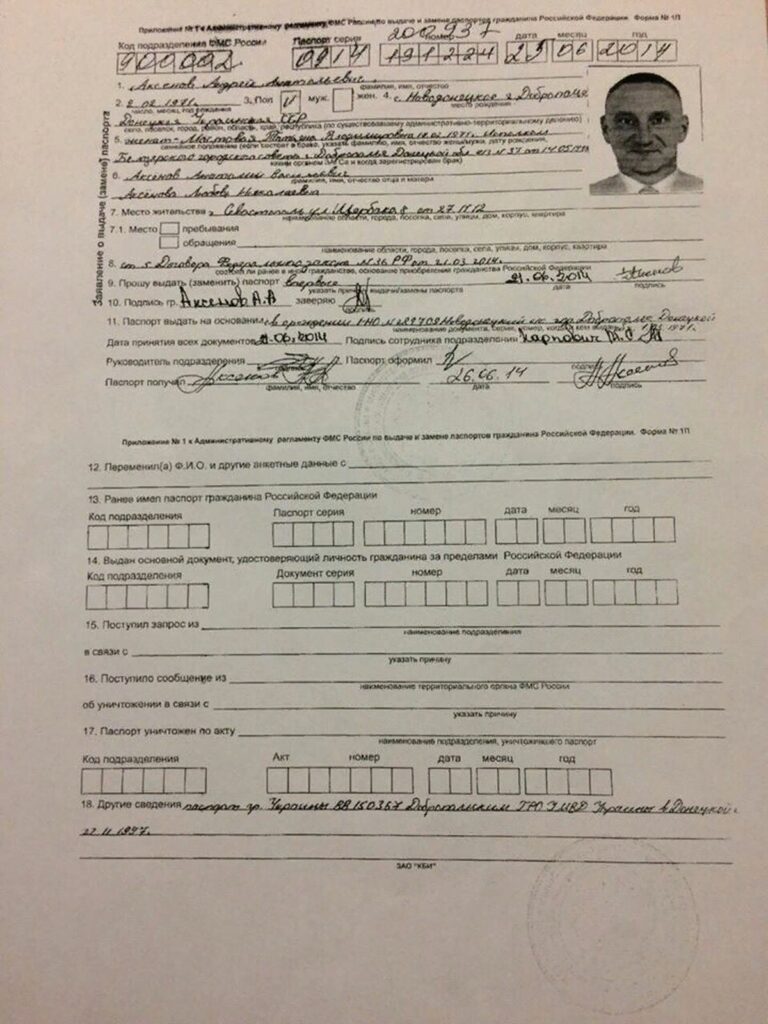 Приложение № 1 к Административному регламенту ФМС России по выдаче и замене паспортов гражданина Российской Федерации. Форма № 1П
200937
Код подразделения ФМС России Паспорт серия номер дата месяц год
900002 0914 191224 23 06 2014
Заявление о выдаче (замене) паспорта
1. Аксенов Андрей Анатольевич
фамилия, имя, отчество
2. 2.02.1971. 3. Пол муж. жен. 4. с. Новодонецкое г. Доброполье
число, месяц, год рождения место рождения
Донецкая Украинская ССР
село, поселок, город, район, область, край, республика (по существовавшему административно-территориальному делению)
5. женат- Мостовая Татьяна Владимировна 1971. Исполком
семейное положение (если состоит в браке, указать фамилию, имя, отчество жены/мужа, дату рождения,
городского совета г. Доброполья Донецкой обл № 37 от 14.05
каким органом ЗАГСа и когда зарегистрирован брак)
6. Аксенов Анатолий Васильевич
фамилия, имя, отчество отца и матери
Аксенова Любовь Николаевна
7. Место жительства г. Севастополь ул Щербака 8 от 27.11.12
наименование области, города, поселка, села, улицы, дом, корпус, квартира
7.1. Место пребывания
обращения
наименование области, города, поселка, села, улицы, дом, корпус, квартира
8. ст 5 Договора Федерального закона N 36 РФ от 21.03.2014.
состоял ли ранее в иностранном гражданстве, основание приобретения гражданства Российской Федерации
9. Прошу выдать (заменить) паспорт впервые 21.06.2014
указать причину выдачи/замены паспорта дата подпись
10. Подпись гр. Аксенов А.А заверяю
подпись
11. Паспорт выдать на основании св. о рождении 1-НО № 289709 Новодонецкий п/с гор Доброполья Донецкой
наименование документа, серия, номер, когда и кем выдан 1971.
Дата принятия всех документов 21.06.2014 Подпись сотрудника подразделения Карпович
Руководитель подразделения Паспорт оформил
подпись
Паспорт получил Аксенов 26.06.14
фамилия, имя, отчество дата подпись
Приложение № 1 к Административному регламенту ФМС России по выдаче и замене паспортов гражданина Российской Федерации. Форма № 1П
12. Переменил(а) Ф.И.О. и другие анкетные данные с
13. Ранее имел паспорт гражданина Российской Федерации
Код подразделения Паспорт серия номер дата месяц год
14. Выдан основной документ, удостоверяющий личность гражданина за пределами Российской Федерации
Код подразделения Документ серия номер дата месяц год
15. Поступил запрос из
наименование подразделения
в связи с
указать причину
16. Поступило сообщение из
наименование территориального органа ФМС России
об уничтожении в связи с
указать причину
17. Паспорт уничтожен по акту
наименование подразделения, уничтожившего паспорт
Код подразделения Акт номер дата месяц год
18. Другие сведения паспорт гр. Украины ВВ150367 Добропольским УМВД Украины в Донецкой
11 1997.
ЗАО "КБИ"